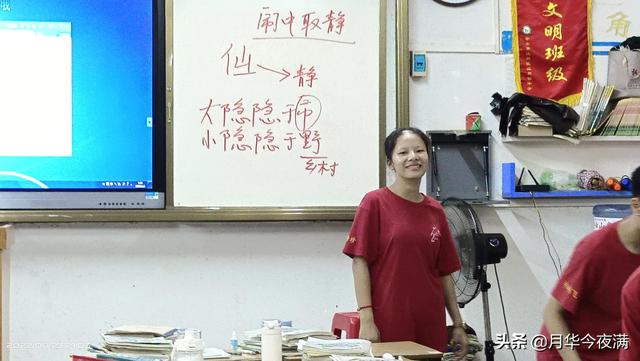 闹中取静
仙→静
大隐隐于市
小隐隐于野
乡村
文明班级
角
头条 @月华今夜满